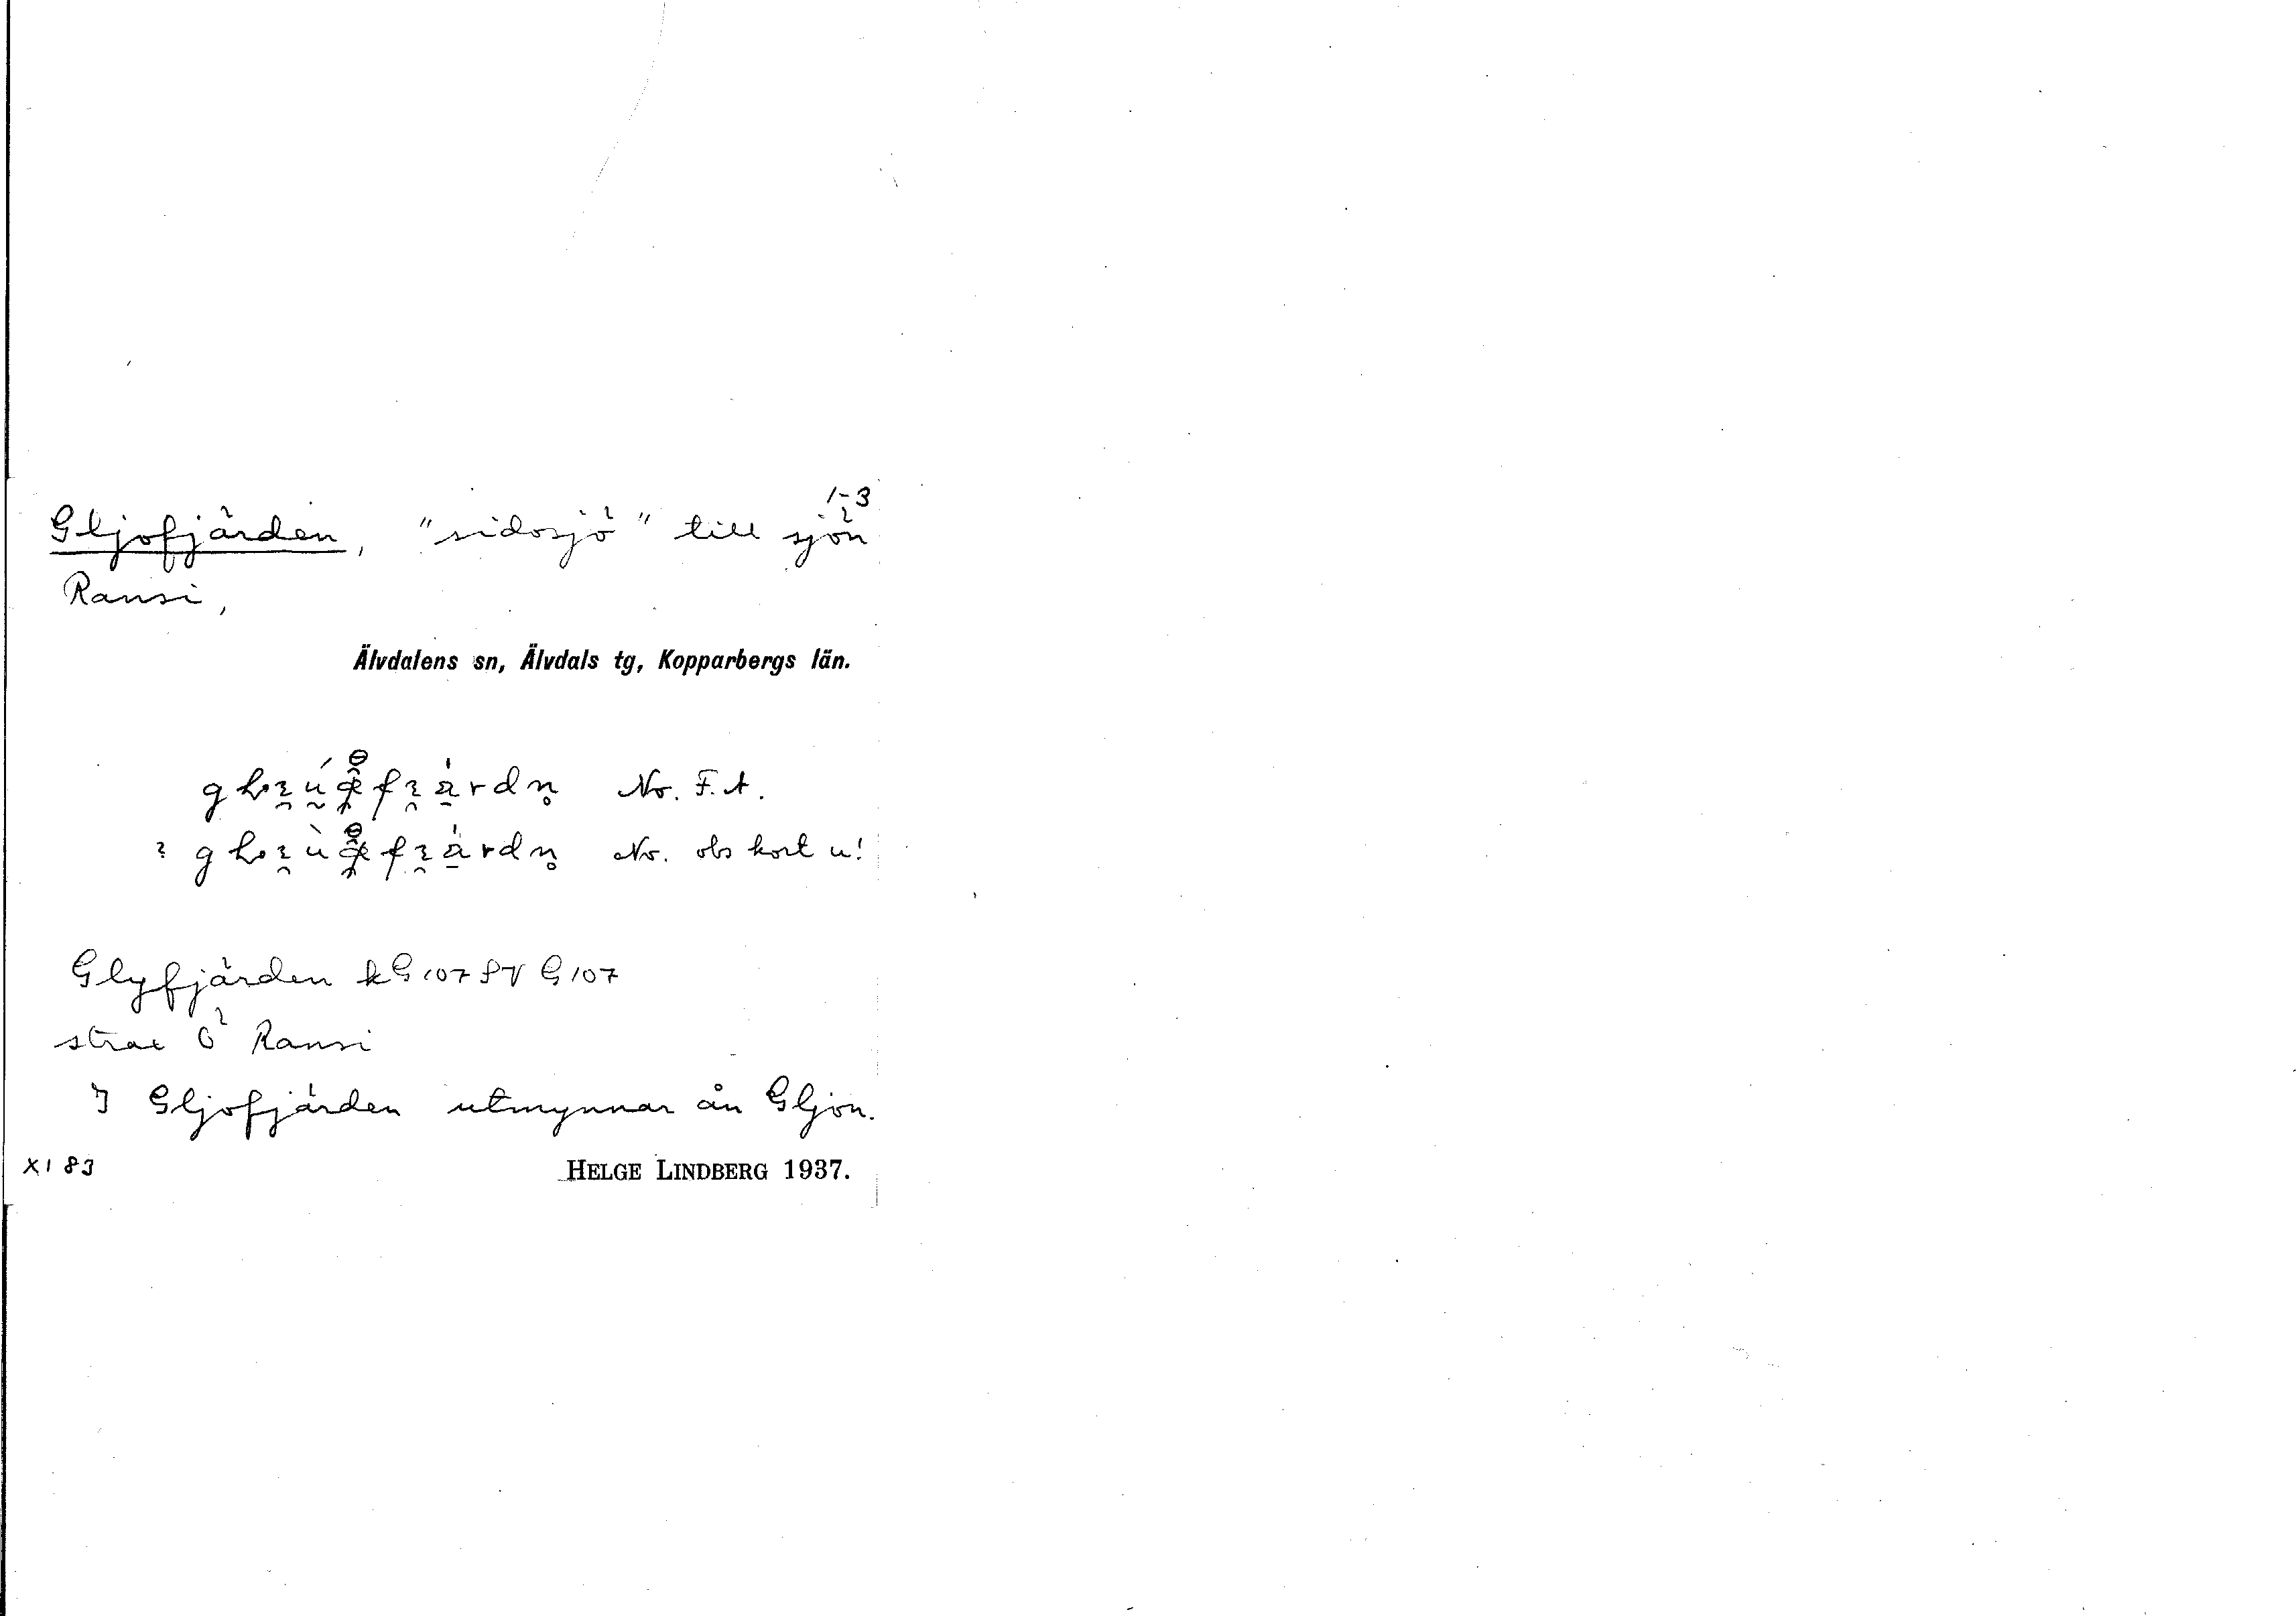 1-3
Gljofjärden, "sidosjö" till sjön
Ransi,
Älvdalens sn, Älvdals tg, Kopparbergs län.
No. F.A.
? No. obs kort u!
Glyfjärden kG107 SV G107
strax Ö Ransi
I Gljofjärden utmynnar ån Gljon.
XI 83 HELGE LINDBERG 1937.